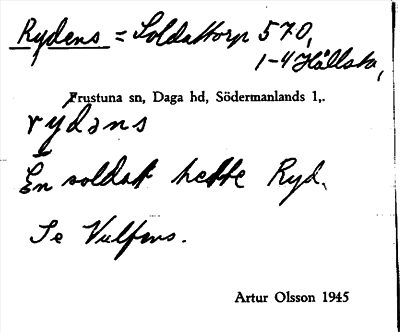 Rydens = Soldattorp 570,
1-4 Hållsta,
Frustuna sn, Daga hd, Södermanlands l,.
rydəns
En soldat hette Ryd.
Se Vulfens.
Artur Olsson 1945